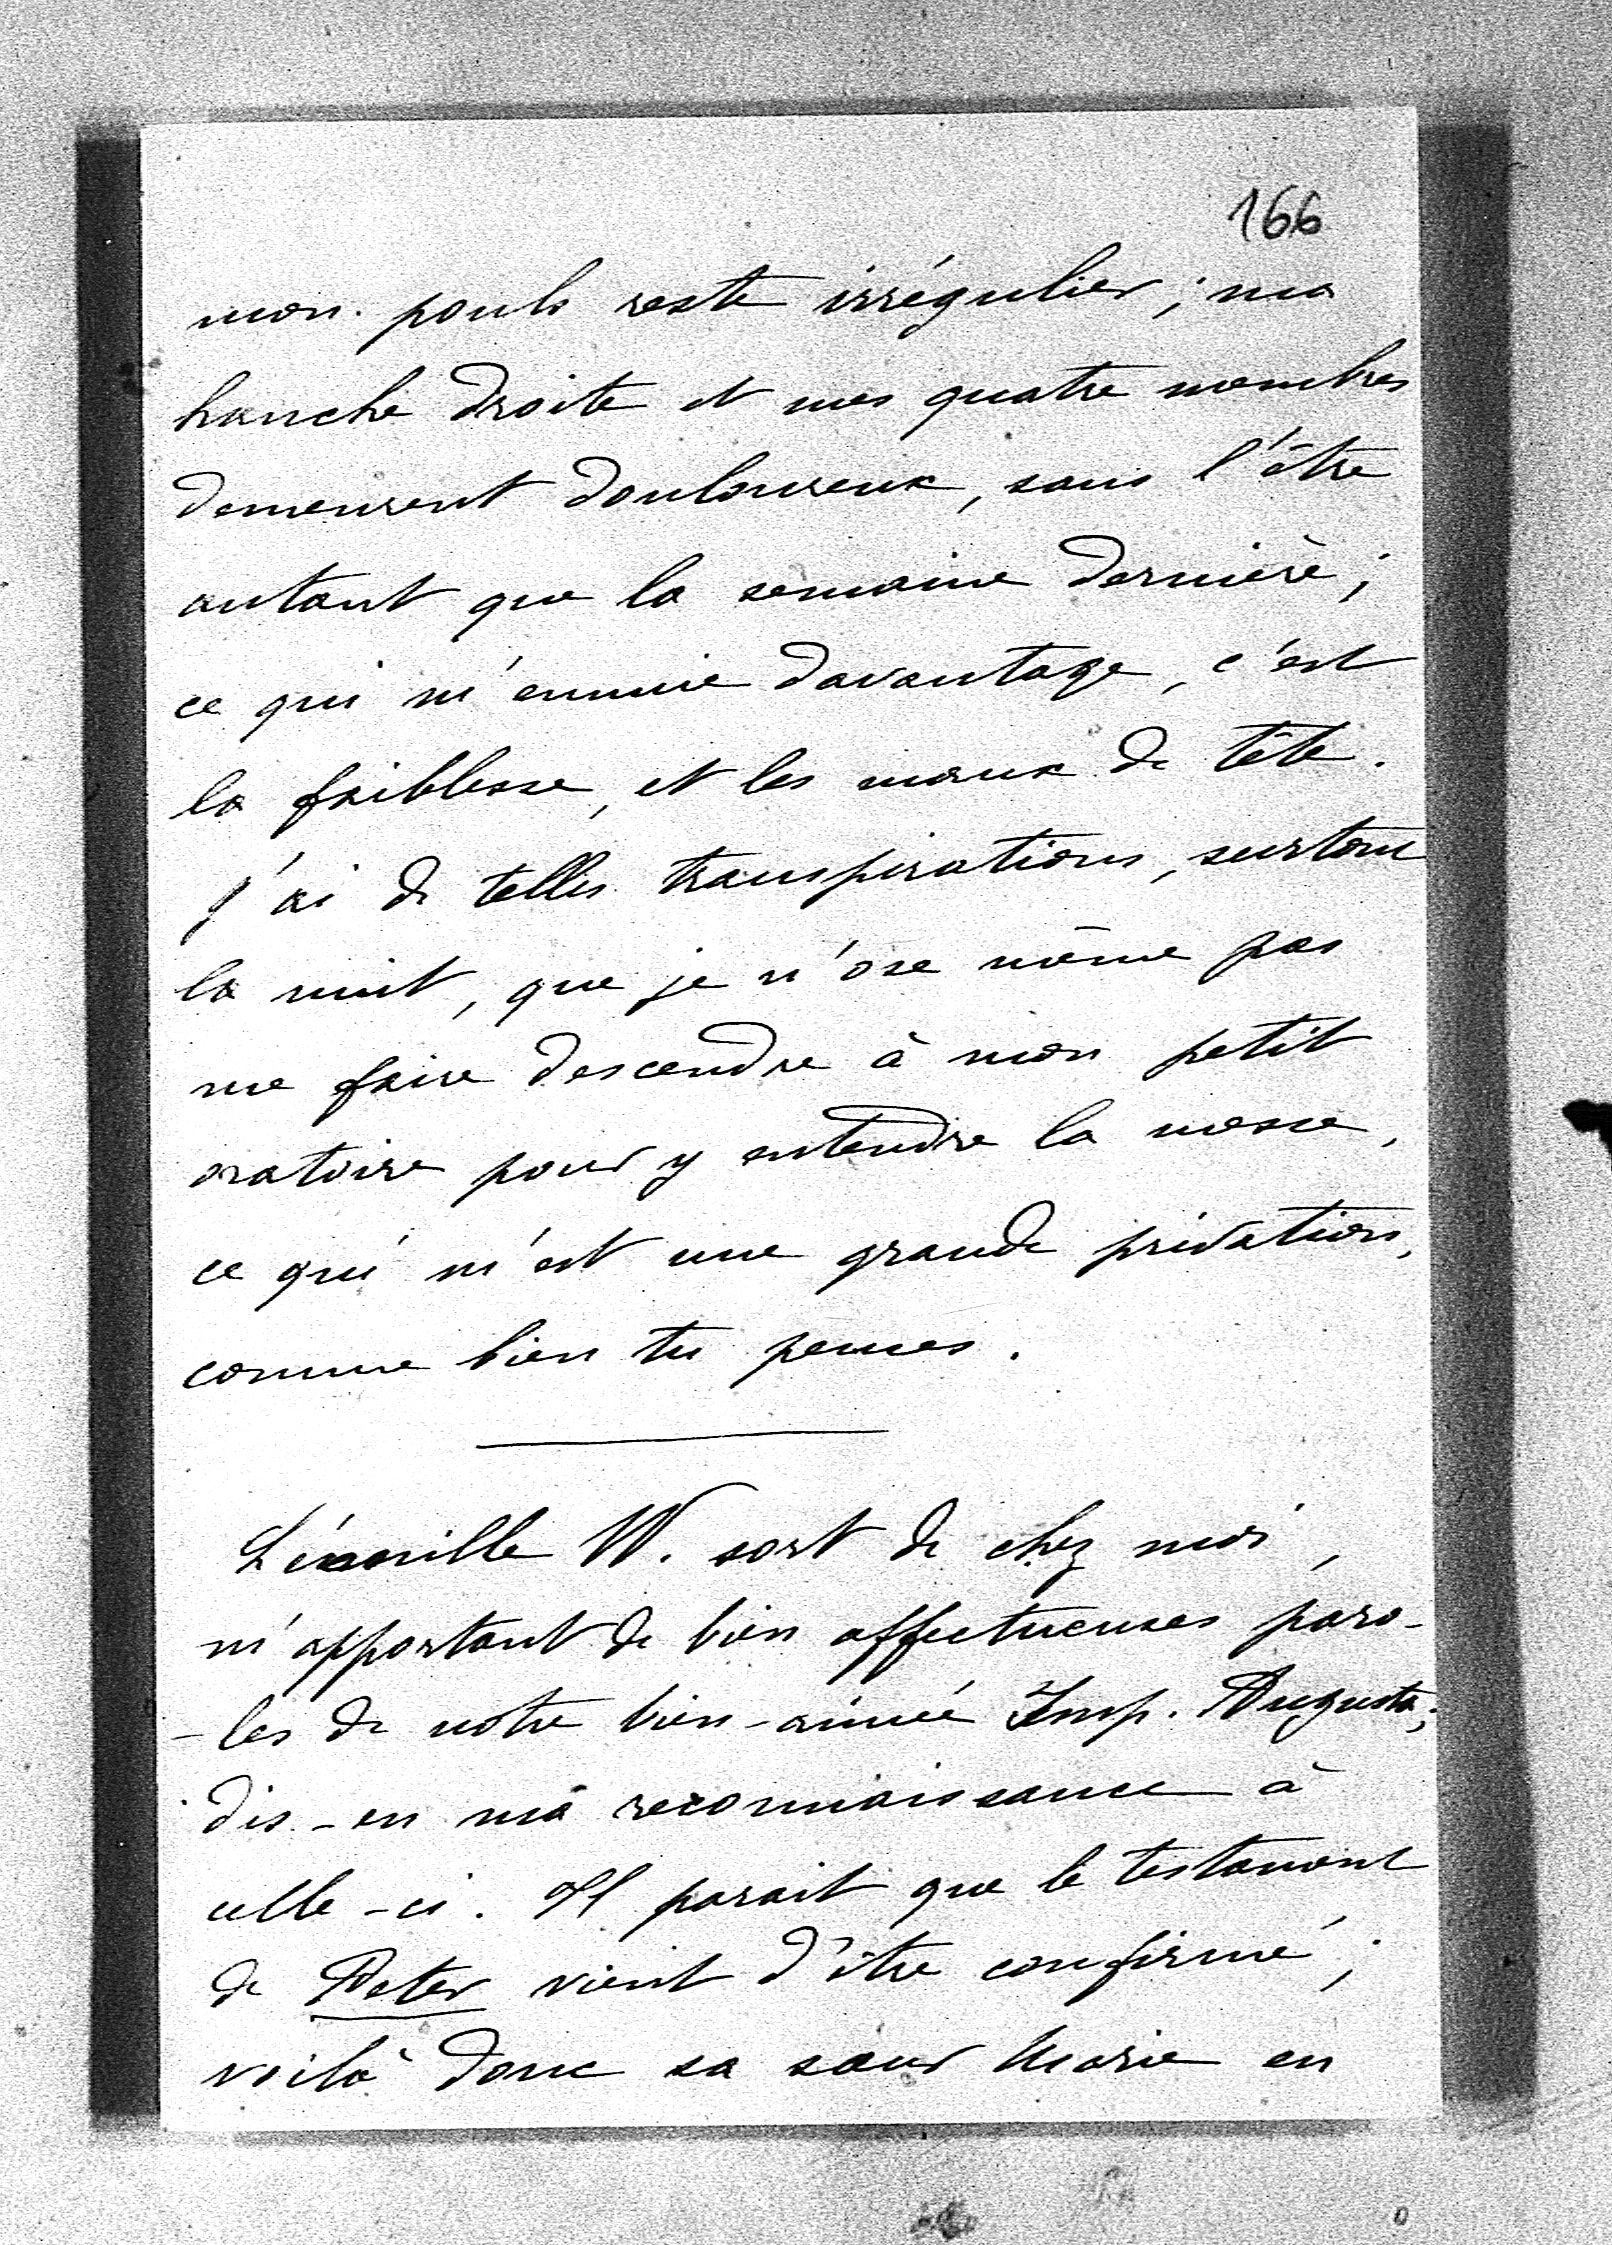 166
mon pouls reste irrégulier ; ma
hanche droite et mes quatre membres
demeurent douloureux, sans l'être
autant que la semaine dernière ;
ce qui m'ennuie davantage, c'est
la faiblesse, et les maux de tête.
J'ai de telles transpirations, surtout
la nuit, que je n'ose même pas
me faire descendre à mon petit
oratoire pour y entendre la messe,
ce qui m'est une grande privation,
comme bien tu penses.
Léonille W. sort de chez moi,
m'apportant de bien affectueuses paro-
-les de notre bien-aimée Imp. Augusta ;
dis-en ma reconnaissance à
celle-ci. Il parait que le testament
de Peter vient d'être confirmé ;
voilà donc sa sœur Marie en